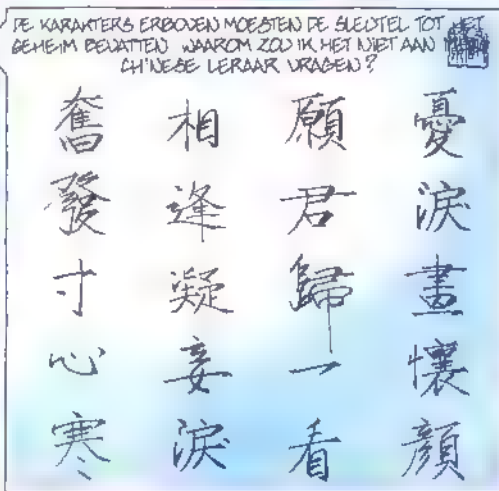 DE KARAKTERS ERBOVEN MOESTEN DE SLEUTEL TOT HET
GEHEIM BEVATTEN. WAAROM ZOU IK HET NIET AAN
CHINESE LERAAR VRAGEN?
憂淚畫懷顏
願君歸一看
相逢凝妾淚
奮發寸心寒